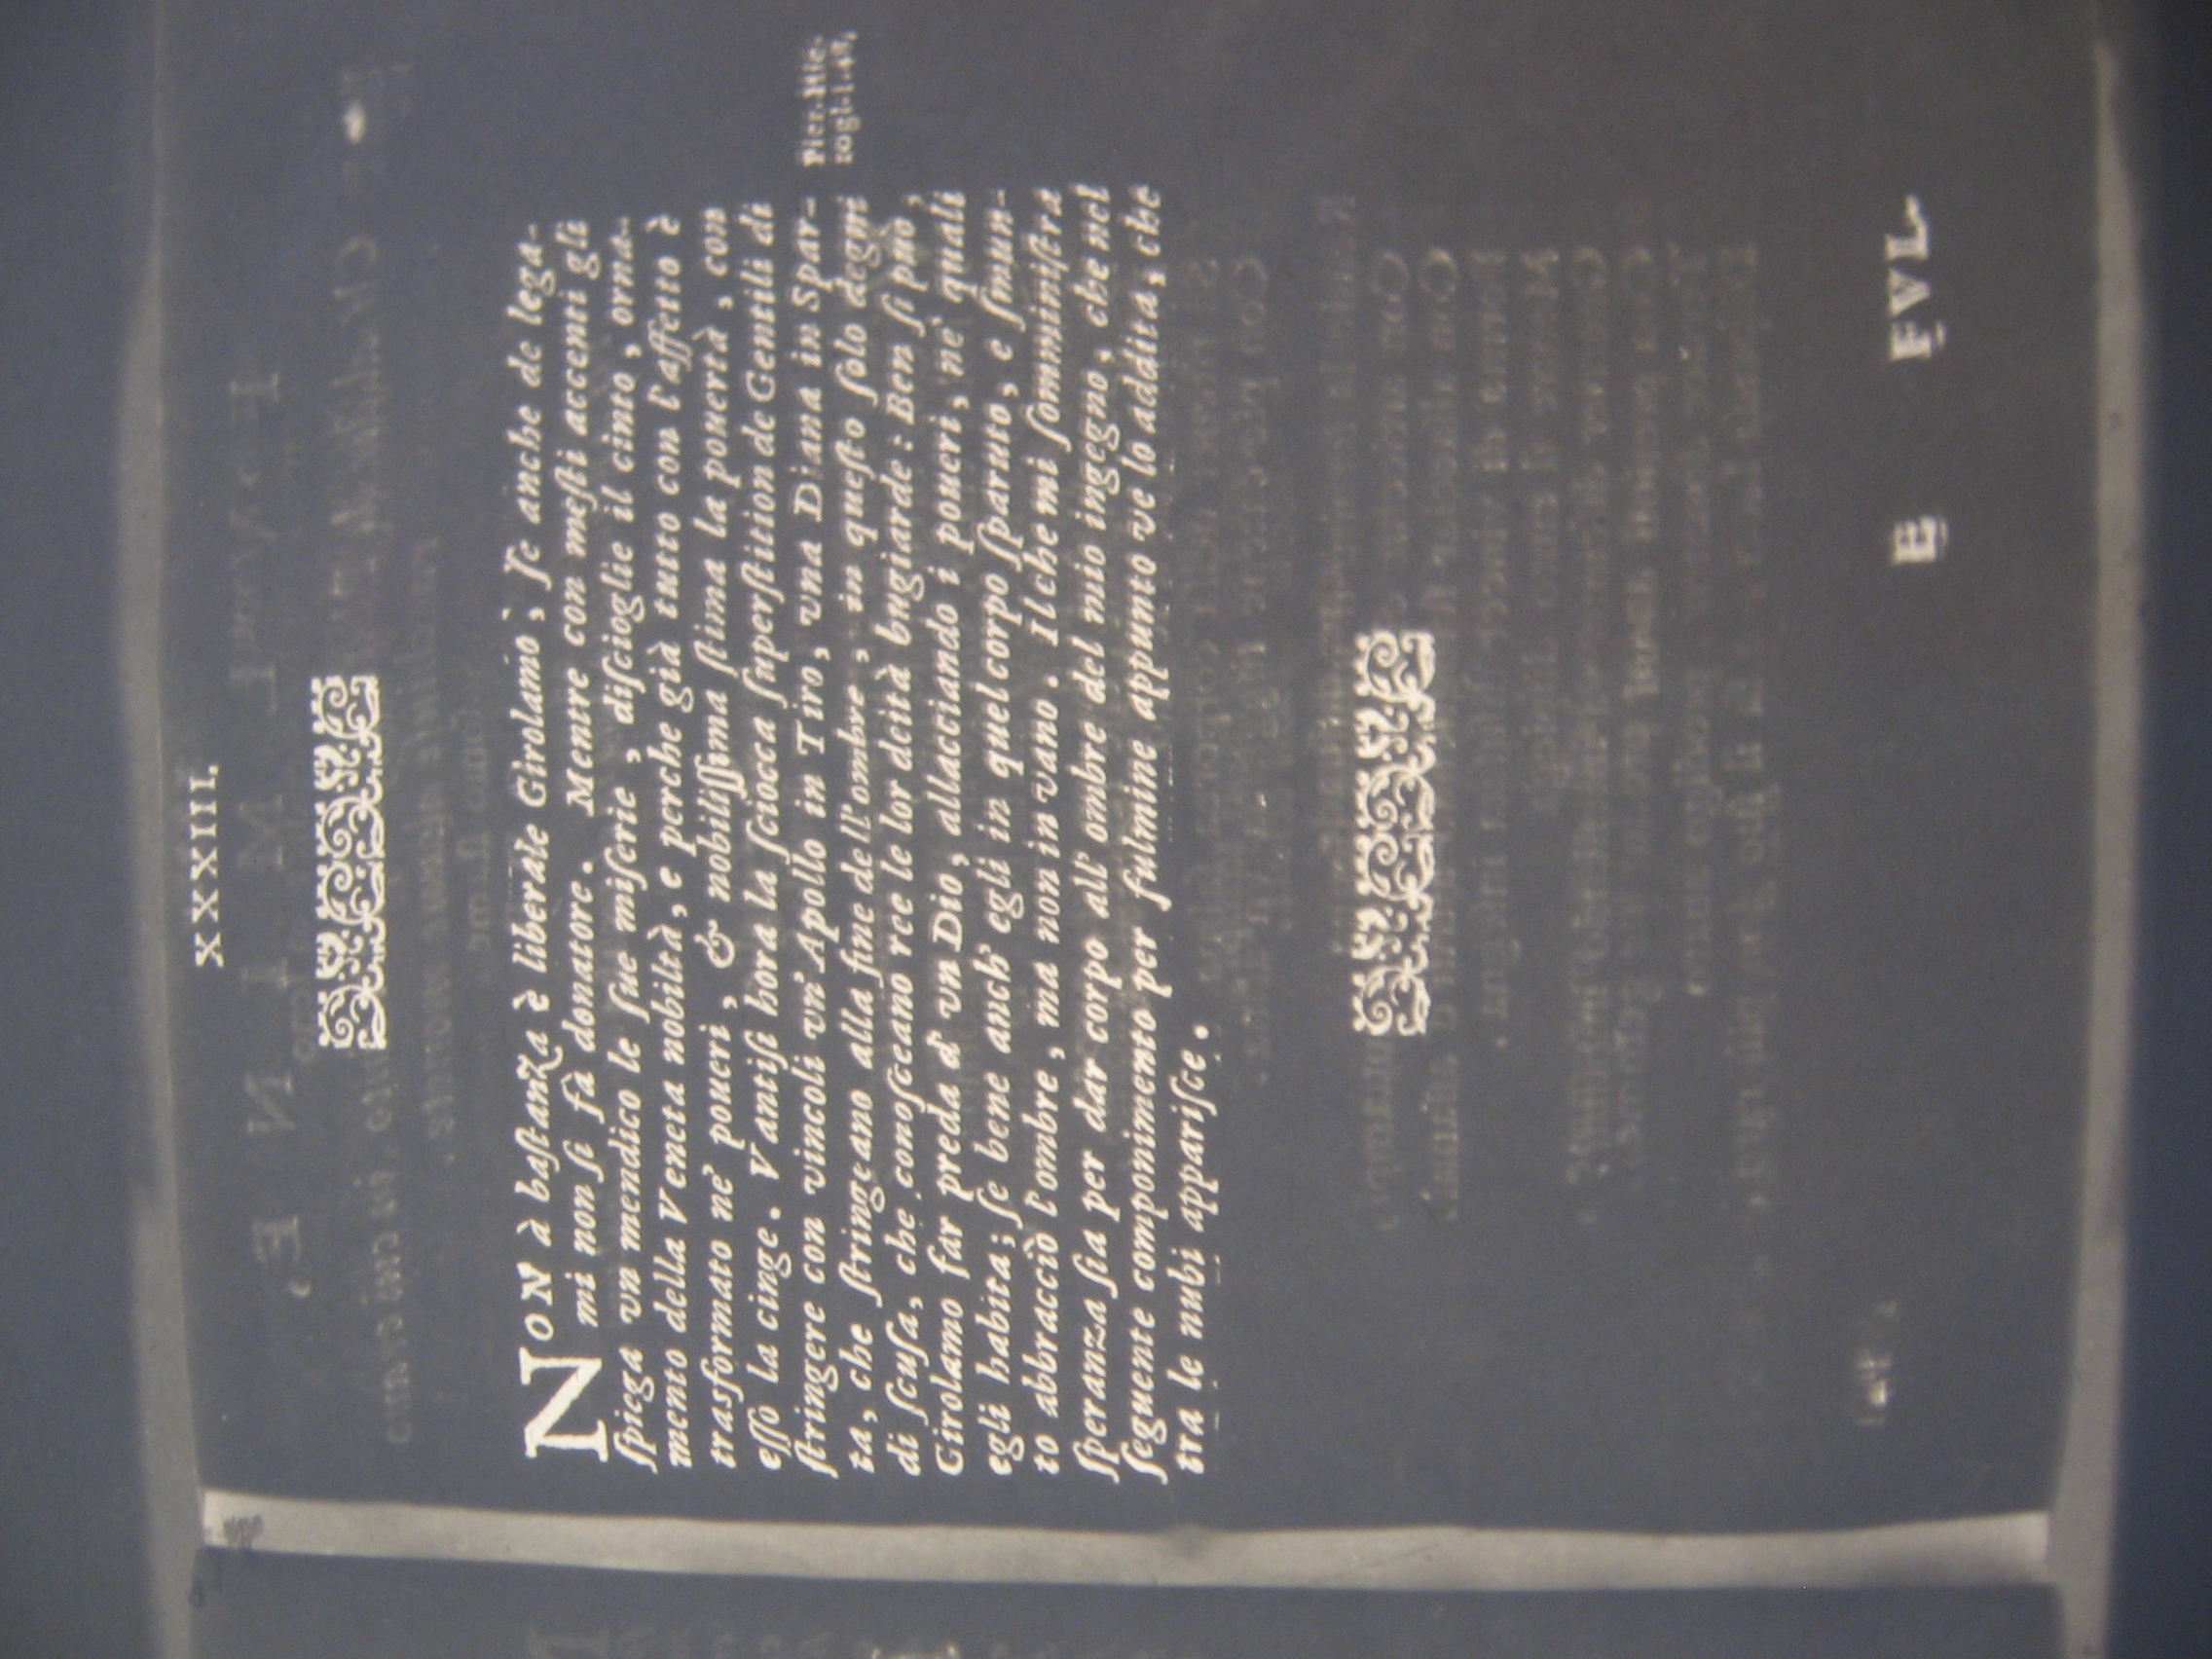 XXXIII.
NON à baſtanza è liberale Girolamo, ſe anche de lega-
mi non ſi fà donatore. Mentre con meſti accenti gli
ſpiega vn mendico le ſue miſerie, diſcioglie il cinto, orna-
mento della Veneta nobiltà, e perche già tutto con l'affetto è
trasformato ne' poueri, & nobiliſſima ſtima la pouertà, con
eſſo la cinge. Vantiſi hora la ſciocca ſuperſtition de Gentili di
ſtringere con vincoli vn' Apollo in Tiro, vna Diana in Spar-
Pier. Hie-
rogl. l. 48.
ta, che ſtringeano alla fine dell'ombre, in queſto ſolo degni
di ſcuſa, che conoſceano ree le lor deità bugiarde: Ben ſi può,
Girolamo far preda d' vn Dio, allacciando i poueri, ne' quali
egli habita; ſe bene anch' egli in quel corpo ſparuto, e ſmun-
to abbracciò l'ombre, ma non in vano. Il che mi ſomminiſtra
ſperanza ſia per dar corpo all' ombre del mio ingegno, che nel
ſeguente componimento per fulmine appunto ve lo addita, che
tra le nubi appariſce.
E FVL-